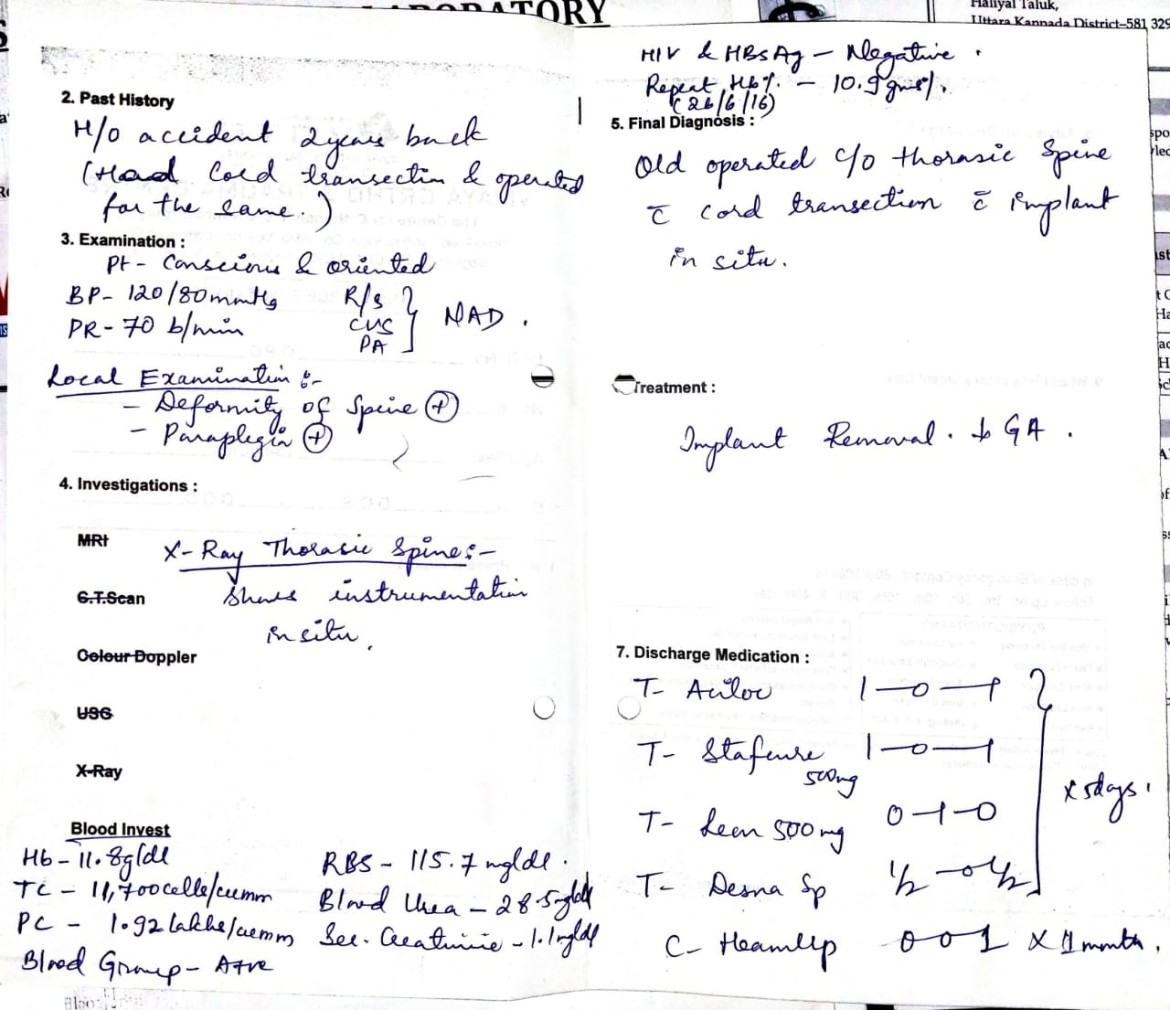 LABORATORY
Haliyal Taluk,
Uttara Kannada District–581 329
2. Past History
H/o accident 2 years back
(Had Cord transection & operated
for the same.)
3. Examination :
Pt - Conscious & oriented
BP- 120/80mmHg R/s
PR- 70 b/min CVS } NAD.
PA
Local Examination :-
- Deformity of Spine (+)
- Paraplegia (+)
4. Investigations :
MRI X-Ray Thorasic Spine:-
C.T.Scan Shows instrumentation
in situ.
Colour Doppler
USG
X-Ray
Blood Invest
Hb - 11.8g/dl RBS - 115.7 mg/dl.
TC - 11,700cells/cumm Blood Urea - 28.5mg/dl
PC - 1.92 lakhs/cumm Ser. Creatinine - 1.1mg/dl
Blood Group - A+ve
HIV & HBsAg - Negative.
Repeat Hb% - 10.9gms%.
(26/6/16)
5. Final Diagnosis :
Old operated c/o thorasic Spine
c̄ cord transection c̄ implant
in situ.
Treatment :
Implant Removal. ↓ GA.
7. Discharge Medication :
T- Aciloc 1-0-1
T- Stafcure 500mg 1-0-1
T- Leen 500 mg 0-1-0 x 5days.
T- Desna Sp ½-0-½
C- Heamup 0 0 1 x 1 month.